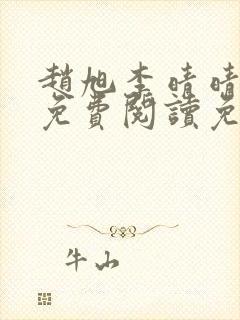 趙旭李晴晴
免費閱讀免
牛山